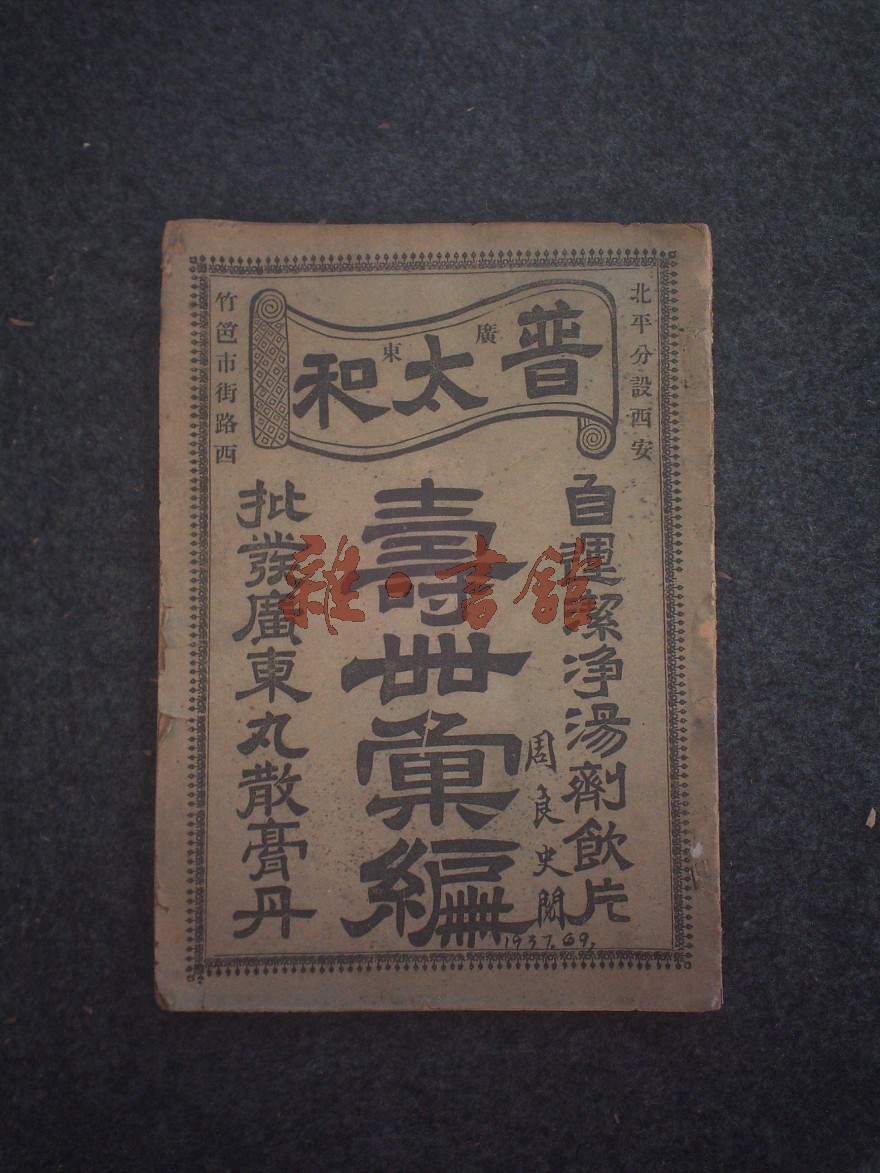 北平分設西安
普太和
廣東
竹笆市街路西
自運潔净湯劑飲片
壽世彙編
批發廣東丸散膏丹
周良史閱
1937.69.
雜·書館